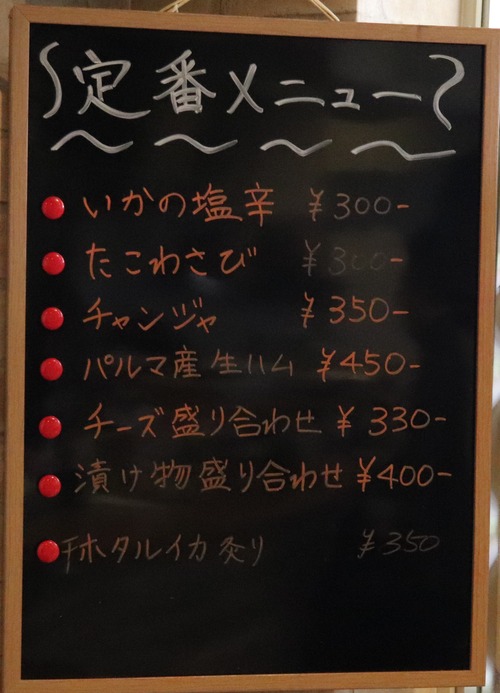 定番メニュー
いかの塩辛 ¥300-
たこわさび ¥300-
チャンジャ ¥350-
パルマ産生ハム ¥450-
チーズ盛り合わせ ¥330-
漬け物盛り合わせ ¥400-
干ホタルイカ炙り ¥350